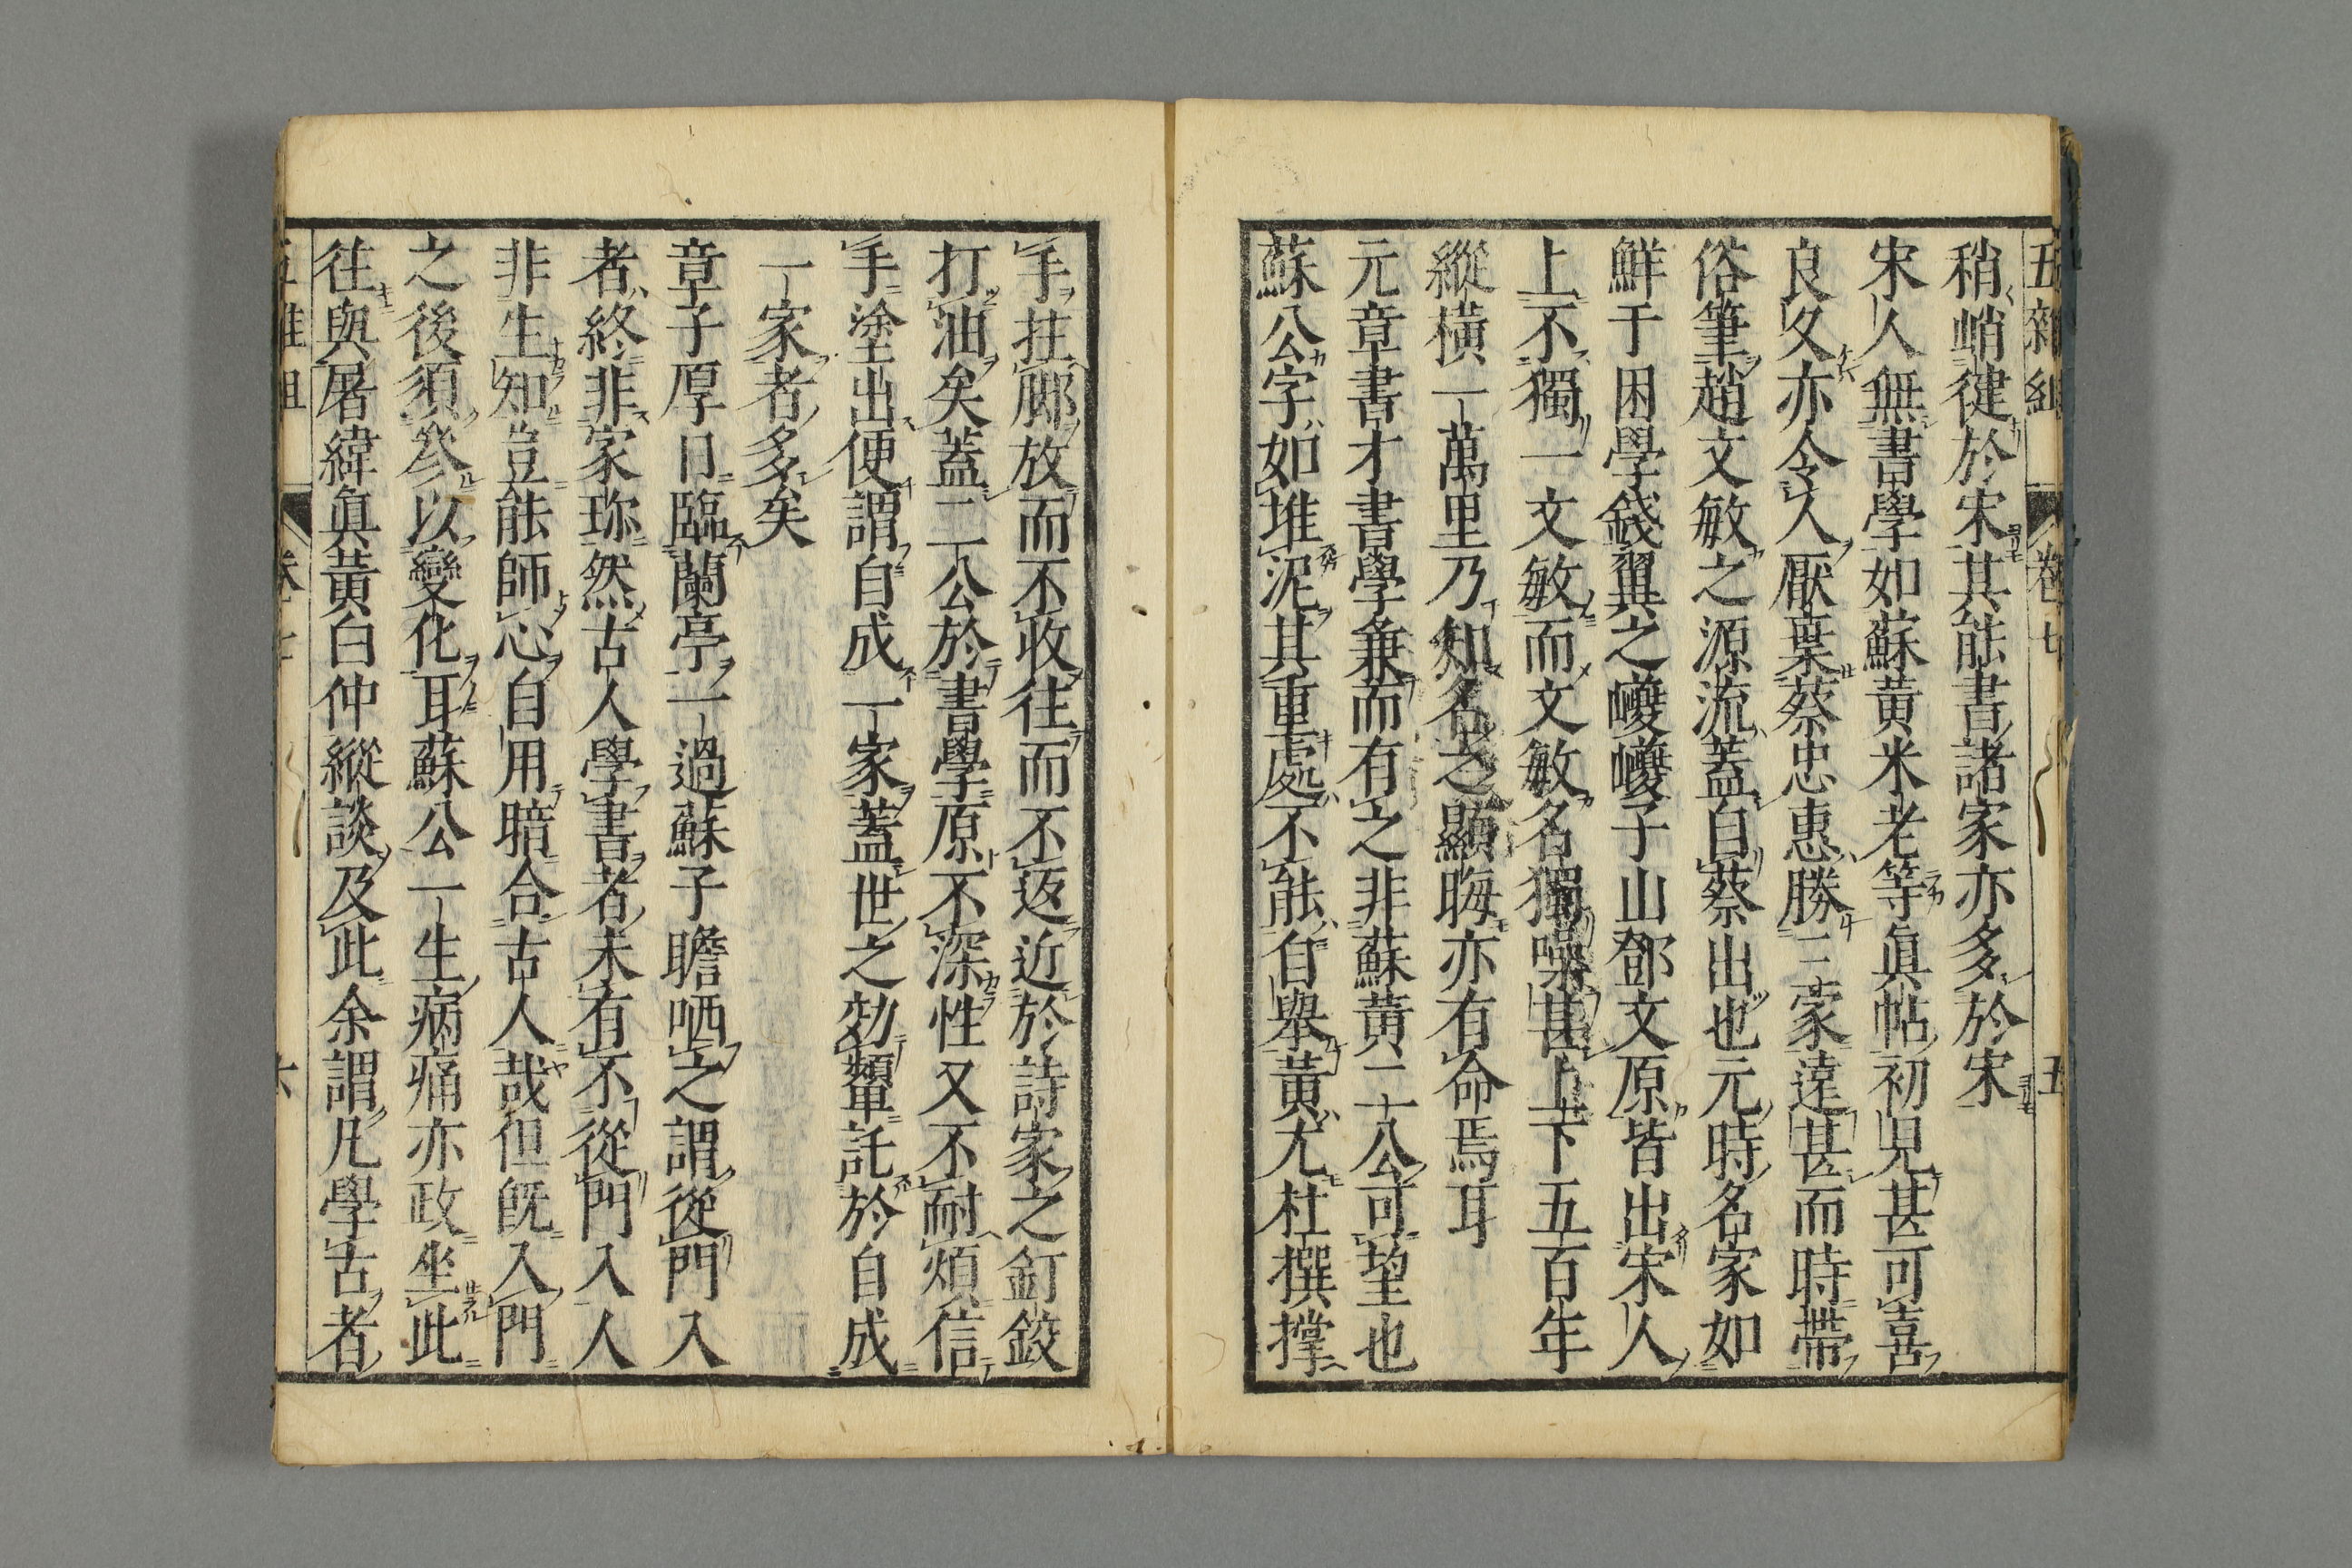 五雜組 卷七 五
稍峭健於宋其能書諸家亦多於宋
宋人無書學如蘇黄米老等眞帖初見甚可喜
良久亦令人厭棄蔡忠惠勝三家遠甚而時帶
俗筆趙文敏之源流蓋自蔡出也元時名家如
鮮于困學錢翼之巙巙子山鄧文原皆出宋人
上不獨一文敏而文敏名獨噪甚上下五百年
縱橫一萬里乃知名之顯晦亦有命焉耳
元章書才書學兼而有之非蘇黄二公可望也
蘇公字如堆泥其重處不能自舉黄尤杜撰撑
手拄脚放而不收往而不返近於詩家之釘鉸
打油矣蓋二公於書學原不深性又不耐煩信
手塗出便謂自成一家蓋世之効顰託於自成
一家者多矣
章子厚日臨蘭亭一過蘇子瞻哂之謂從門入
者終非家珎然古人學書者未有不從門入人
非生知豈能師心自用暗合古人哉但旣入門
之後須參以變化耳蘇公一生病痛亦政坐此
往與屠緯眞黄白仲縱談及此余謂凡學古者